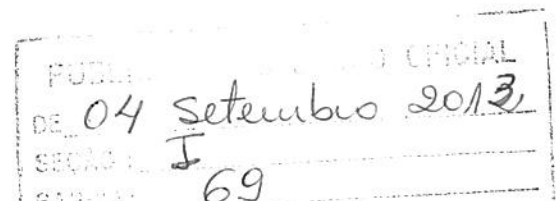 OFICIAL
DE 04 Setembro 2013
SEÇÃO I
69